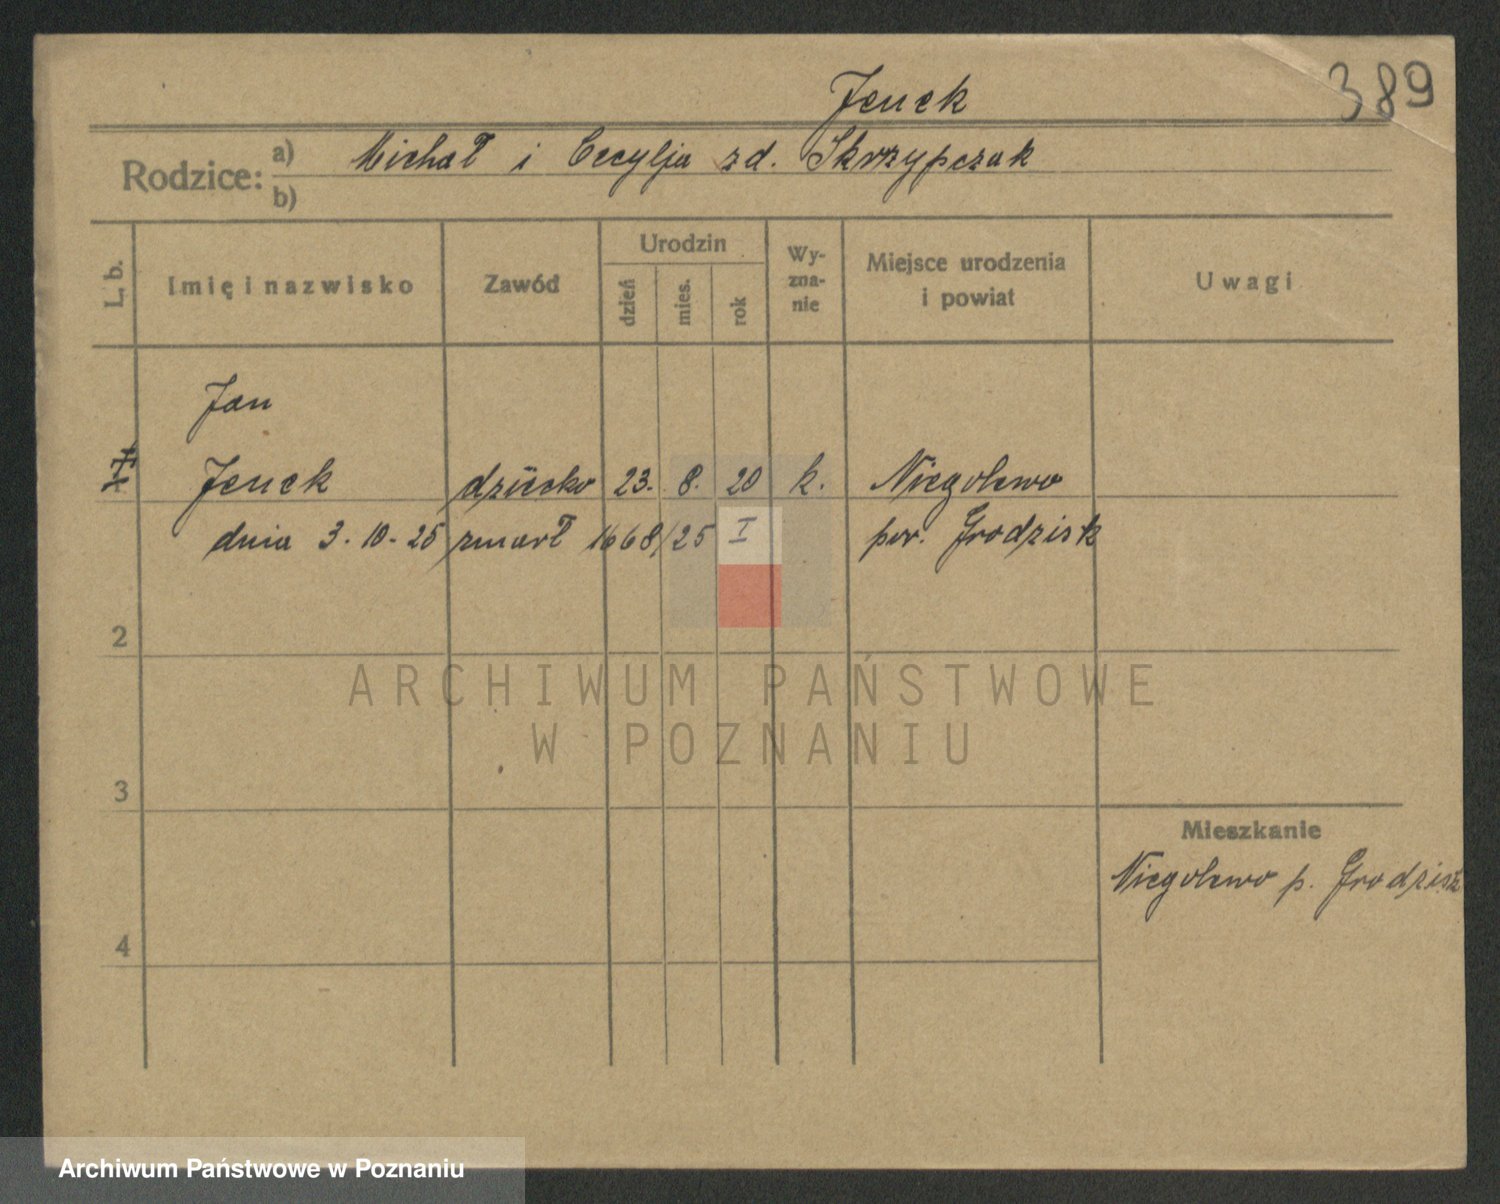 Jenek
389
Rodzice: a) Michał i Cecylja zd. Skrzypczak
b)
L. b.
Imię i nazwisko
Zawód
Urodzin
dzień
mies.
rok
Wy-
zna-
nie
Miejsce urodzenia
i powiat
Uwagi
Jan
Jenek dziecko 23. 8. 20 k. Niegolewo
dnia 3.10.25 zmarł 1668/25 I pow. Grodzisk
2
ARCHIWUM PAŃSTWOWE
W POZNANIU
3
Mieszkanie
Niegolewo p. Grodzisk
4
Archiwum Państwowe w Poznaniu